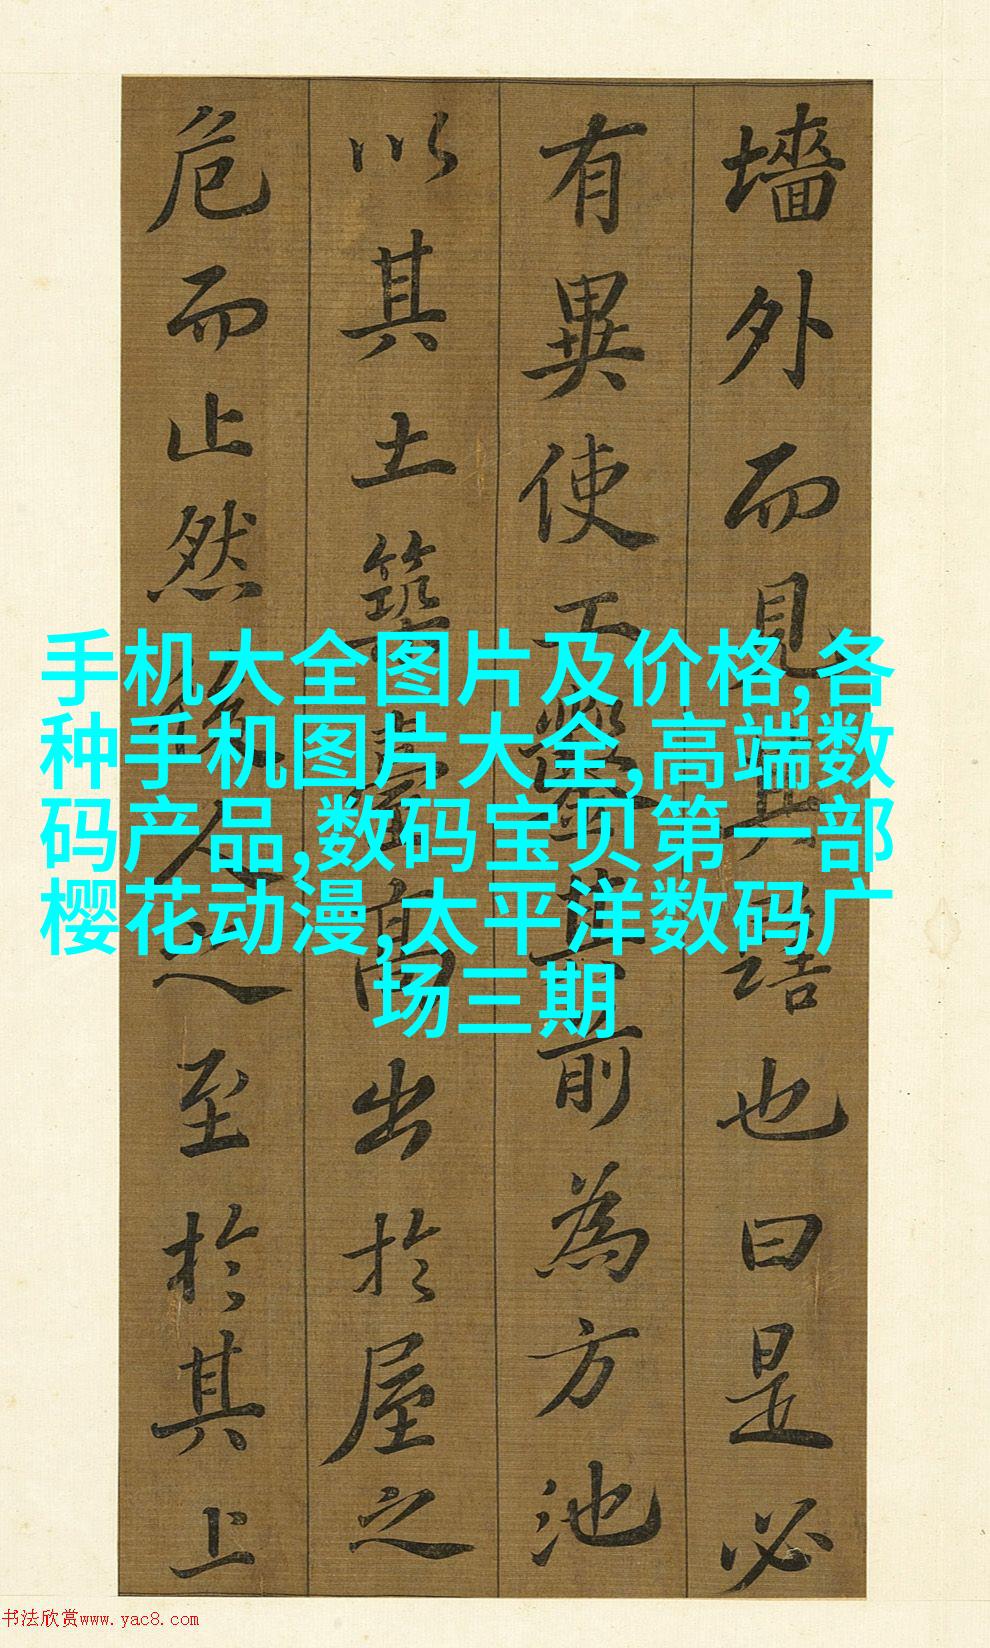 墻外而見其髻也曰是必
有異使工鑿其前為方池
以其土築臺高出於屋之
危而止然後人之至於其上
手机大全图片及价格,各
种手机图片大全,高端数
码产品,数码宝贝第一部
樱花动漫,太平洋数码广
场三期
书法欣赏www.yac8.com